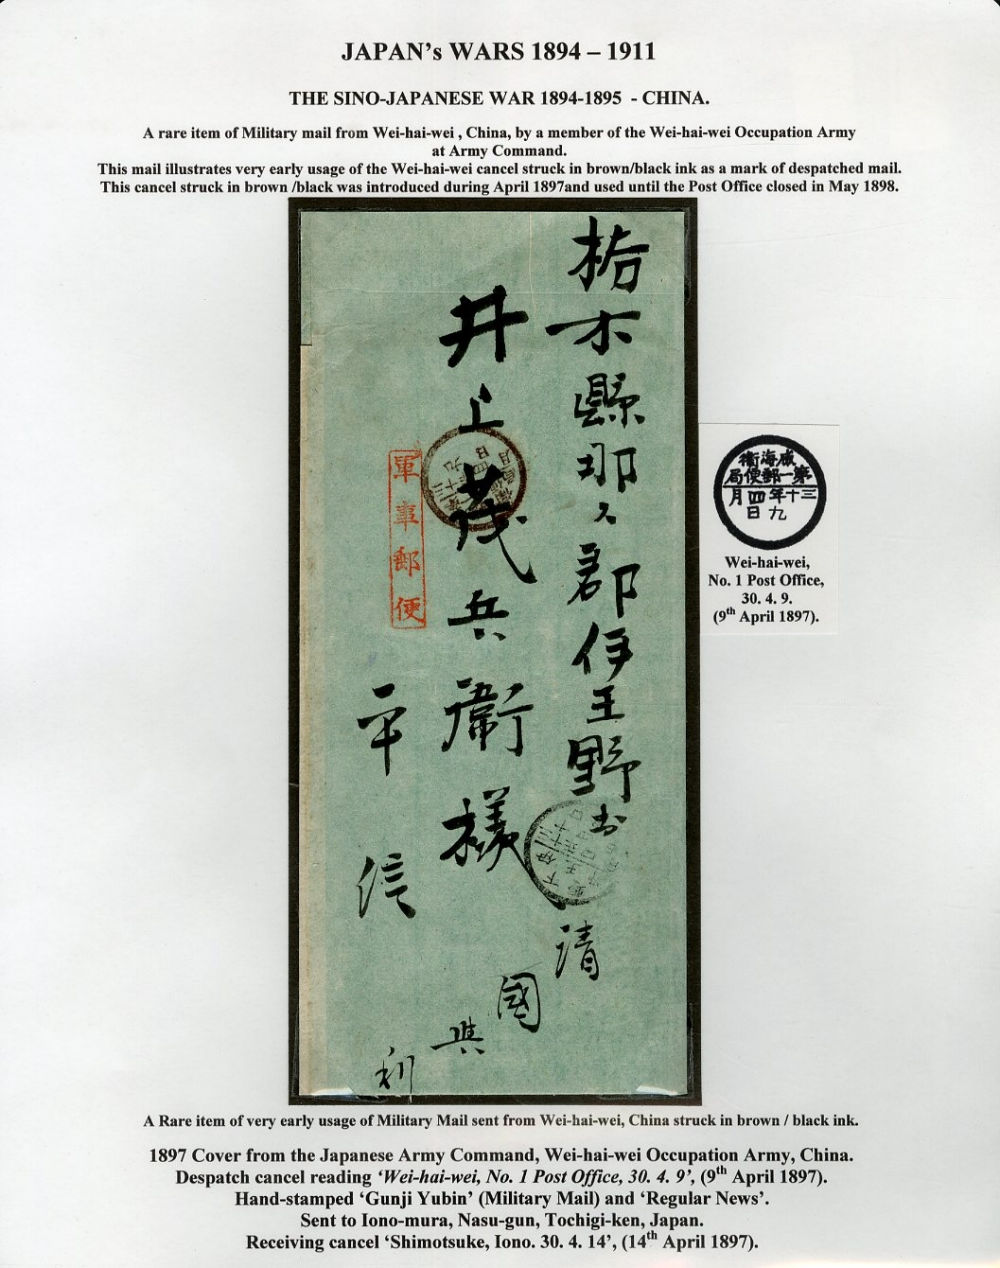 JAPAN's WARS 1894 – 1911
THE SINO-JAPANESE WAR 1894-1895 - CHINA.
A rare item of Military mail from Wei-hai-wei , China, by a member of the Wei-hai-wei Occupation Army
at Army Command.
This mail illustrates very early usage of the Wei-hai-wei cancel struck in brown/black ink as a mark of despatched mail.
This cancel struck in brown /black was introduced during April 1897and used until the Post Office closed in May 1898.
栃木縣那々郡伊王野
井上茂兵衛様
軍事郵便
平信
清國
利
威海衛
第一郵便局
三十年四月
九日
Wei-hai-wei,
No. 1 Post Office,
30. 4. 9.
(9th April 1897).
A Rare item of very early usage of Military Mail sent from Wei-hai-wei, China struck in brown / black ink.
1897 Cover from the Japanese Army Command, Wei-hai-wei Occupation Army, China.
Despatch cancel reading ‘Wei-hai-wei, No. 1 Post Office, 30. 4. 9’, (9th April 1897).
Hand-stamped ‘Gunji Yubin’ (Military Mail) and ‘Regular News’.
Sent to Iono-mura, Nasu-gun, Tochigi-ken, Japan.
Receiving cancel ‘Shimotsuke, Iono. 30. 4. 14’, (14th April 1897).